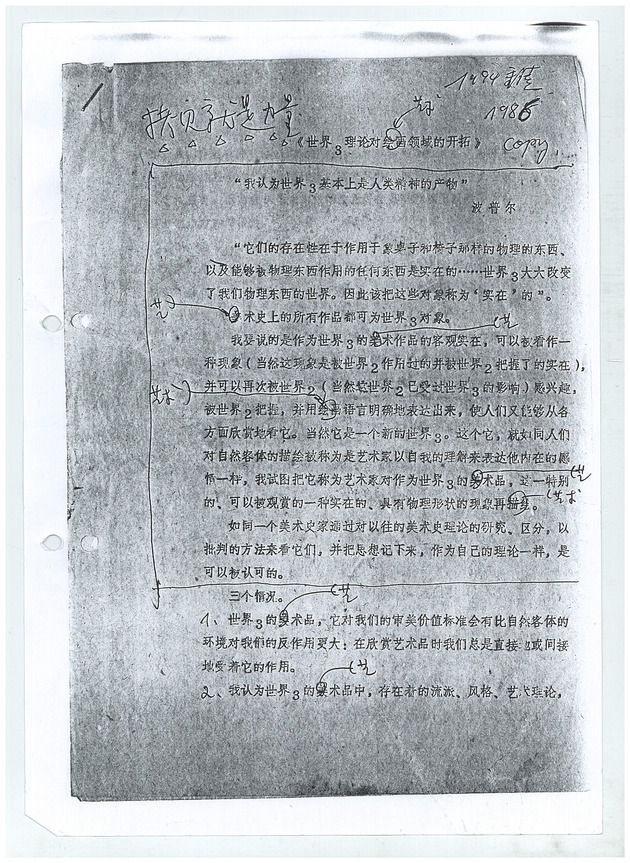 1994
1986
copy
艺术
拷贝就是力量
《世界3理论对绘画领域的开拓》
“我认为世界3基本上是人类精神的产物”
波普尔
“它们的存在性在于作用于象桌子和椅子那样的物理的东西、
以及能够被物理东西作用的任何东西是实在的……世界3大大改变
了我们物理东西的世界。因此该把这些对象称为‘实在’的”。
艺
美术史上的所有作品都可为世界3对象。
艺
我要说的是作为世界3的美术作品的客观实在，可以被看作一
种现象（当然这现象是被世界2作用过的并被世界2把握了的实在），
艺术
并可以再次被世界2（当然较世界2已受过世界3的影响）感兴趣，
被世界2把握，并用绘画语言明确地表达出来，使人们又能够从各
方面欣赏地看它。当然它是一个新的世界3。这个它，就如同人们
对自然客体的描绘被称为是艺术家以自我的理解来表达他内在的感
艺
情一样，我试图把它称为艺术家对作为世界3的美术品，这一特别
艺术
的、可以被观赏的一种实在的、具有物理形状的现象再描绘。
如同一个美术史家通过对以往的美术史理论的研究、区分，以
批判的方法来看它们，并把思想记下来，作为自己的理论一样，是
可以被认可的。
三个情况。
艺
1、世界3的美术品，它对我们的审美价值标准会有比自然客体的
环境对我们的反作用更大；在欣赏艺术品时我们总是直接地或间接
地受着它的作用。
艺
2、我认为世界3的美术品中，存在着的流派、风格、艺术理论，